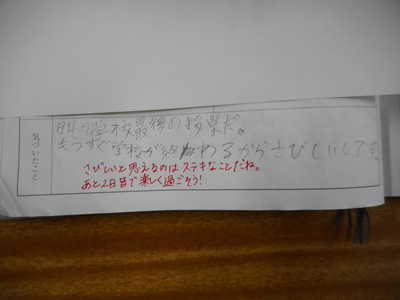 気づいたこと
学校最後の授業だ。
もうすぐ学校が終わるからさびしい
さびしいと思えるのはステキなことだね。
あと2日目で楽しく過ごそう!